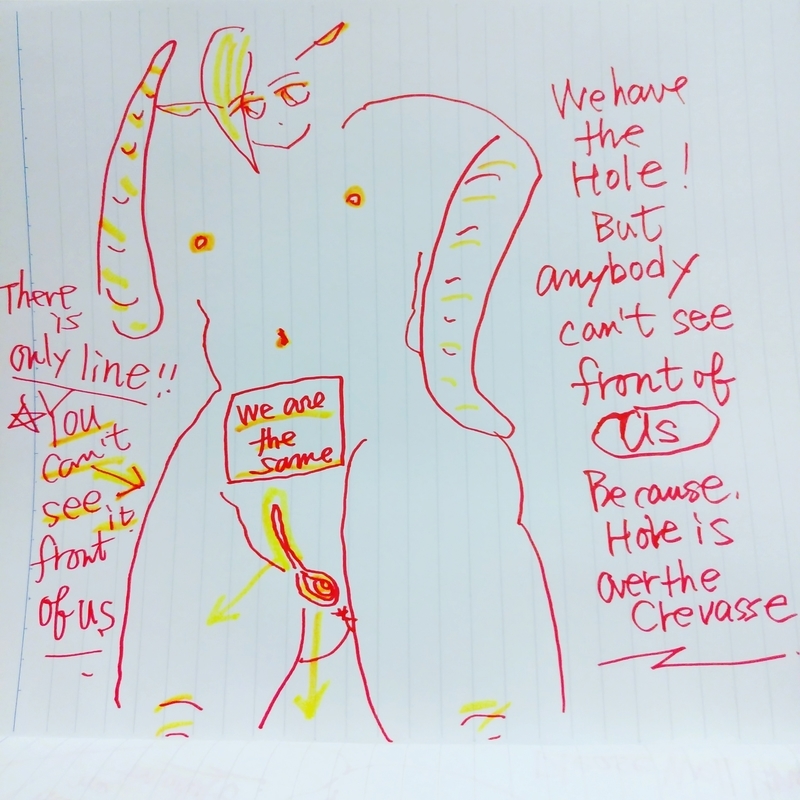 There
is
only line!!
☆You
can't
see it
front
of us
we are
the
same
We have
the
Hole!
But
anybody
can't see
front of
Us
Because.
Hole is
over the
Crevasse